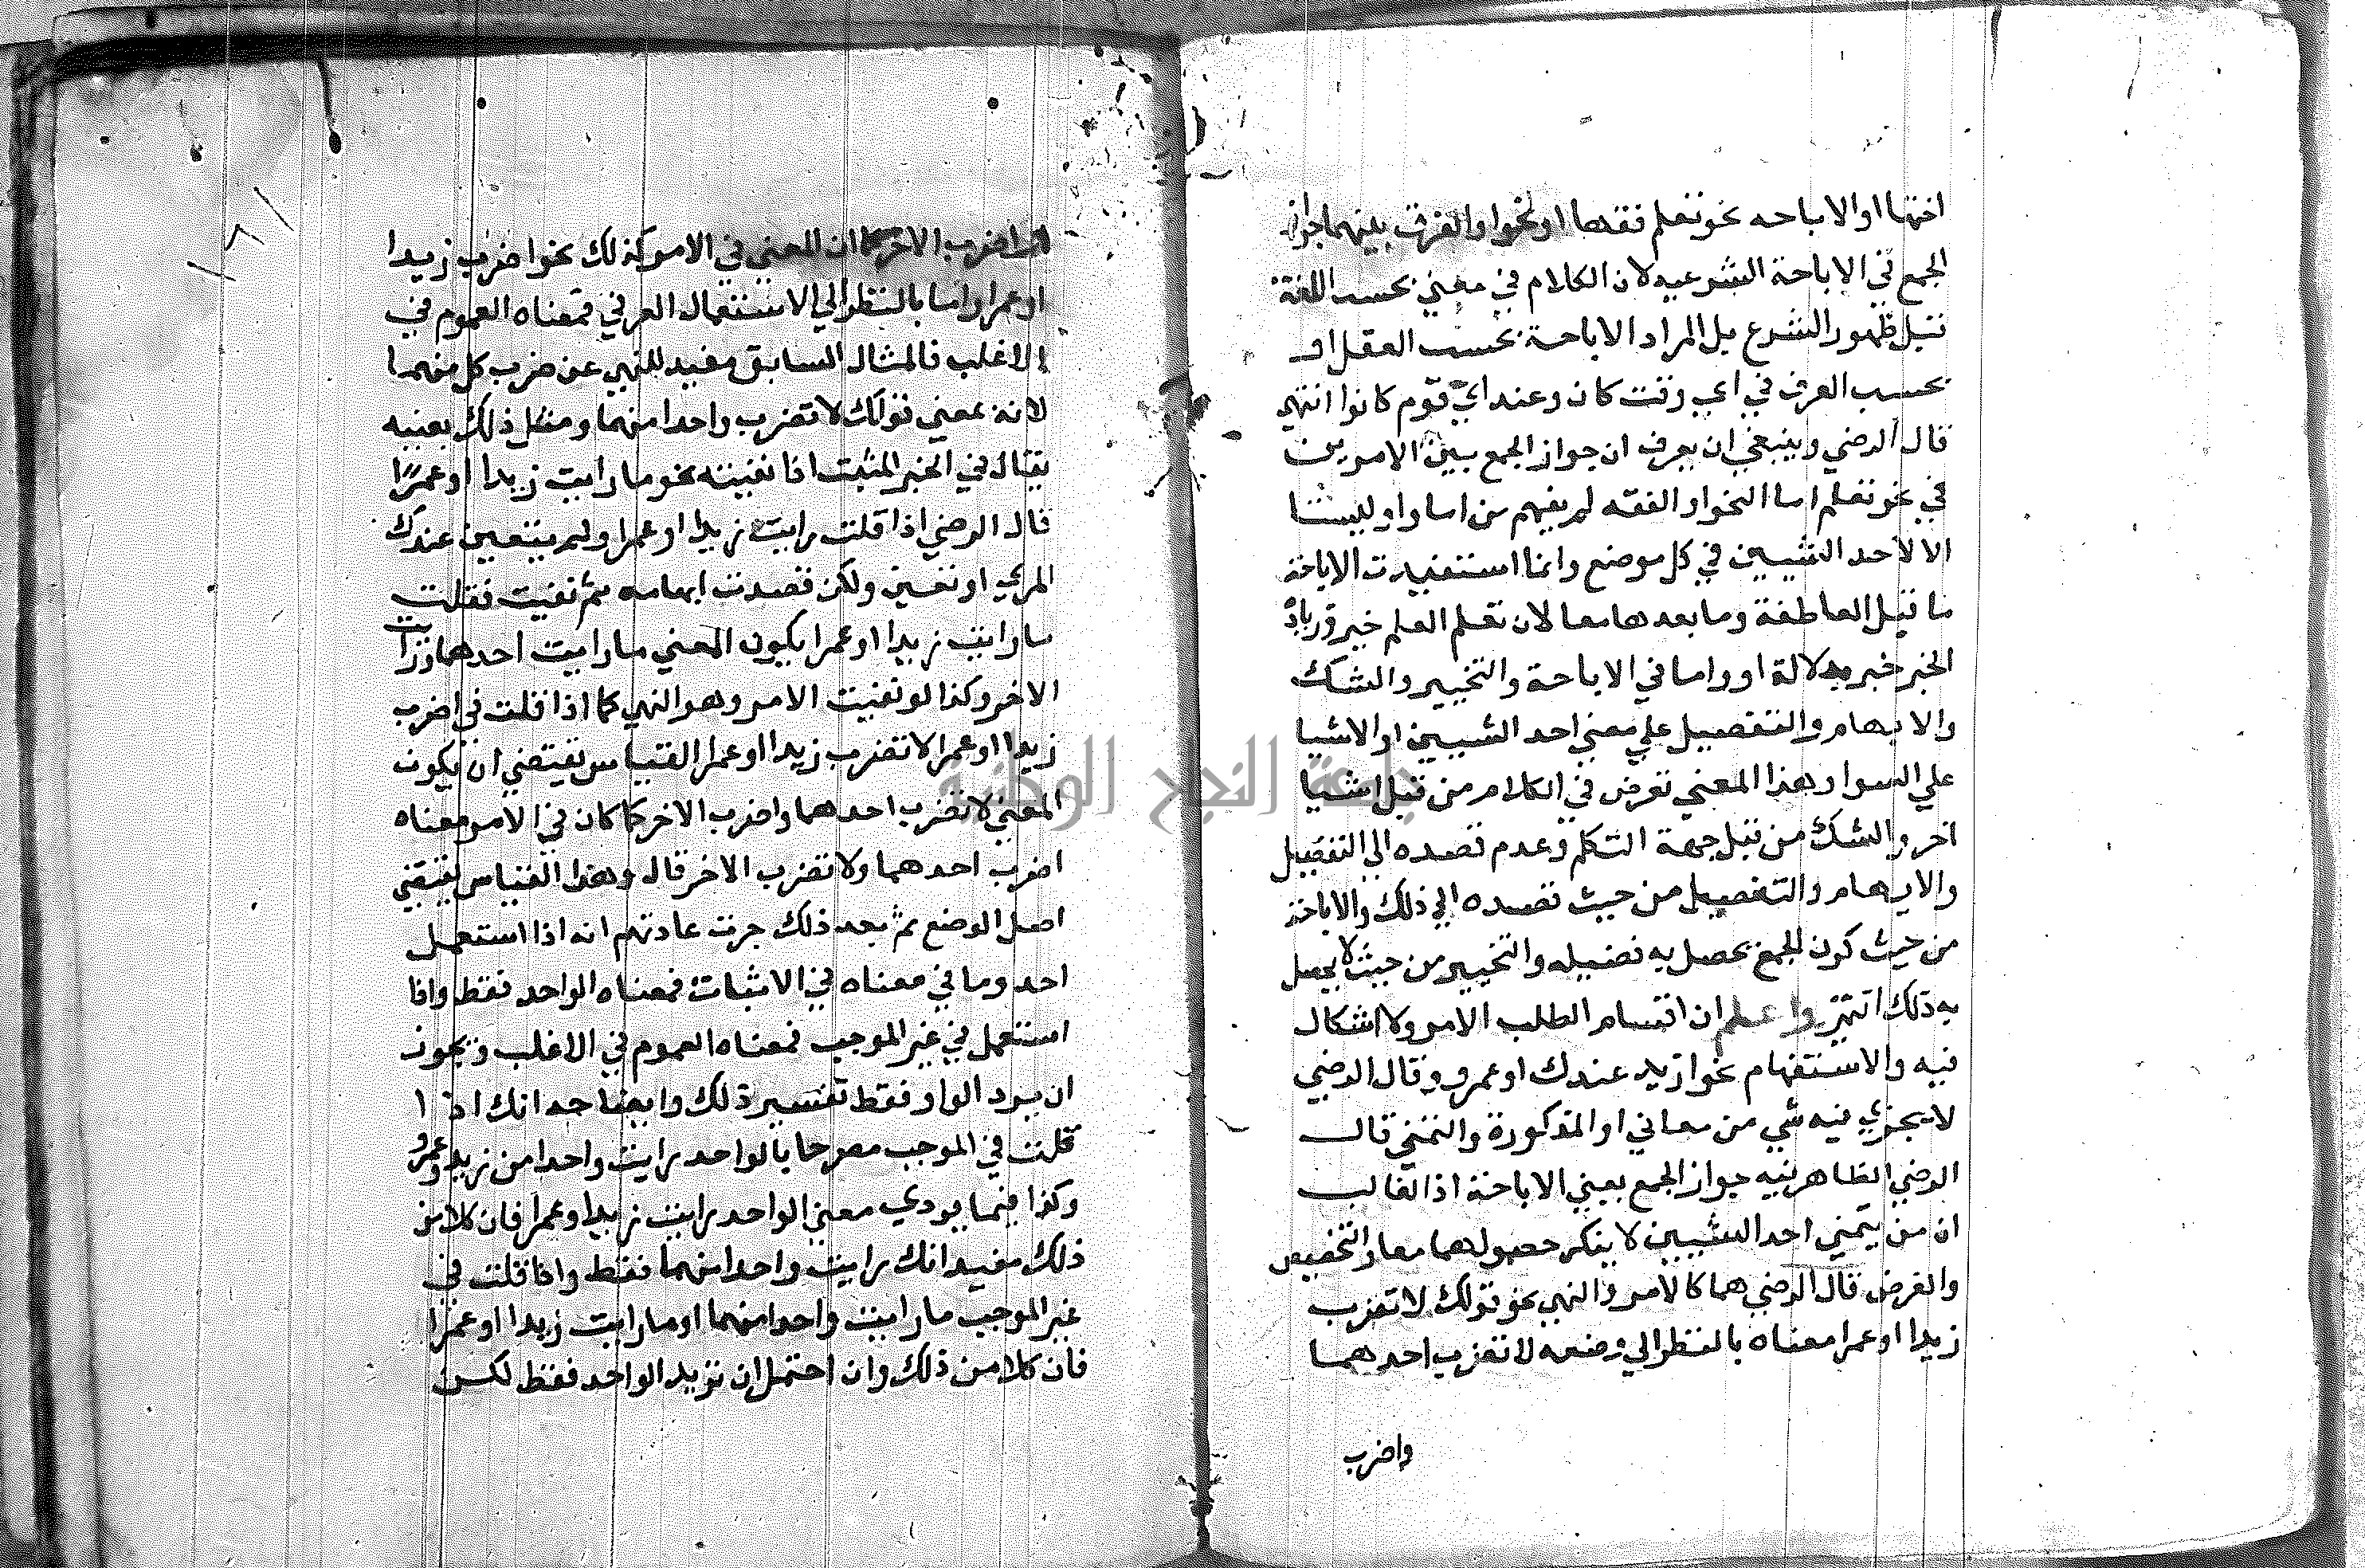 اختها او الاباحه نحو تعلم فقها او نحوا والفرق بينهما جواز
الجمع في الاباحة الشرعيه لان الكلام في معني بحسب اللغة
قبل ظهور الشرع بل المراد الاباحة بحسب العقل او
بحسب العرف في اي وقت كان وعند اي قوم كانوا انتهي
قال الرضي وينبغي ان يعرف ان جواز الجمع بين الامرين
في نحو تعلم اما النحو او الفقه لم يفهم من اما واو ليستا
الا لاحد الشيين في كل موضع وانما استفيدت الاباحة
مما قبل العاطفة وما بعدها معا لان تعلم العلم خير وزيادة
الخير خير بدلالة او واما في الاباحة والتخيير والشك
والابهام والتفصيل علي معني احد الشيين او الاشيا
علي السوا وهذا المعني تعرض في الكلام من قبل اشيا
اخر والشك من قبل جهة التكلم وعدم قصده الي التفصيل
والابهام والتفصيل من حيث قصده الي ذلك والاباحة
من حيث كون الجمع يحصل به فضيله والتخيير من حيث لا يحصل
به ذلك انتهي واعلم ان اقسام الطلب الامر ولا اشكال
فيه والاستفهام نحو ازيد عندك او عمرو وقال الرضي
لا يجزي فيه شي من معاني او المذكورة والتمني قال
الرضي الظاهر فيه جواز الجمع بعني الاباحة اذ الغالب
ان من يتمني احد الشيين لا ينكر حصولهما معا والتخصيص
والعرض قال الرضي هما كالامر والنهي نحو قولك لا تضرب
زيدا او عمرا معناه بالنظر الي وضعه لا تضرب احدهما
واضرب
واضرب الاخر كما ان المعني في الامر كذلك نحو اضرب زيدا
او عمرا واما بالنظر الي الاستعمال العرفي فمعناه العموم في
الاغلب فالمثال السابق مفيد للنهي عن ضرب كل منهما
لانه بمعني قولك لا تضرب واحدا منهما ومثل ذلك بعينه
يقال في الخبر المثبت اذا نفيته نحو ما رايت زيدا او عمرا
قال الرضي اذا قلت رايت زيدا او عمرا ولم يتعين عندك
المري او تعين ولكن قصدت ابهامه ثم نفيت فقلت
ما رايت زيدا او عمرا يكون المعني ما رايت احدهما ورايت
الاخر وكذا لو نفيت الامر وهو النهي كما اذا قلت في اضرب
زيدا او عمرا لا تضرب زيدا او عمرا القياس يقتضي ان يكون
المعني لا تضرب احدهما واضرب الاخر كما كان في الامر معناه
اضرب احدهما ولا تضرب الاخر قال وهذا القياس يقتضي
اصل الوضع ثم بعد ذلك جرت عادتهم انه اذا استعمل
احد وما في معناه في الاثبات فمعناه الواحد فقط واذا
استعمل في غير الموجب فمعناه العموم في الاغلب ويجوز
ان يرد الواو فقط تفسير ذلك وايضاحه انك اذا
قلت في الموجب مصرحا بالواحد رايت واحدا من زيد وعمرو
وكذا فيما يودي معني الواحد رايت زيدا او عمرا فان كلا من
ذلك مفيد انك رايت واحدا منهما فقط واذا قلت في
غير الموجب ما رايت واحدا منهما او ما رايت زيدا او عمرا
فان كلا من ذلك وان احتمل ان تزيد الواحد فقط لكن
جامعة النجاح الوطنية